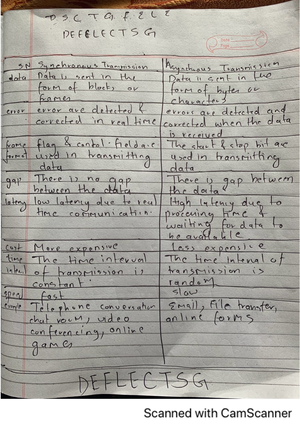 DSCTGFELE
DEFELECTSG
S.N Synchronous Transmission Asynchronous Transmission
data Data is sent in the form of blocks or frames Data is sent in the form of bytes or characters
error error are detected & corrected in real time errors are detected and corrected when the data is received
frame format flag & control field are used in transmitting data The start & stop bit are used in transmitting data
gap There is no gap between the data There is gap between the data
latency low latency due to real time communication. High latency due to processing time & waiting for data to be available
cost More expensive Less expensive
time interval The time interval of transmission is constant The time interval of transmission is random
speed fast slow
Telephone conversation chat room, video conferencing, online games Email, File transfer, online forms
DEFLECTSG
Scanned with CamScanner